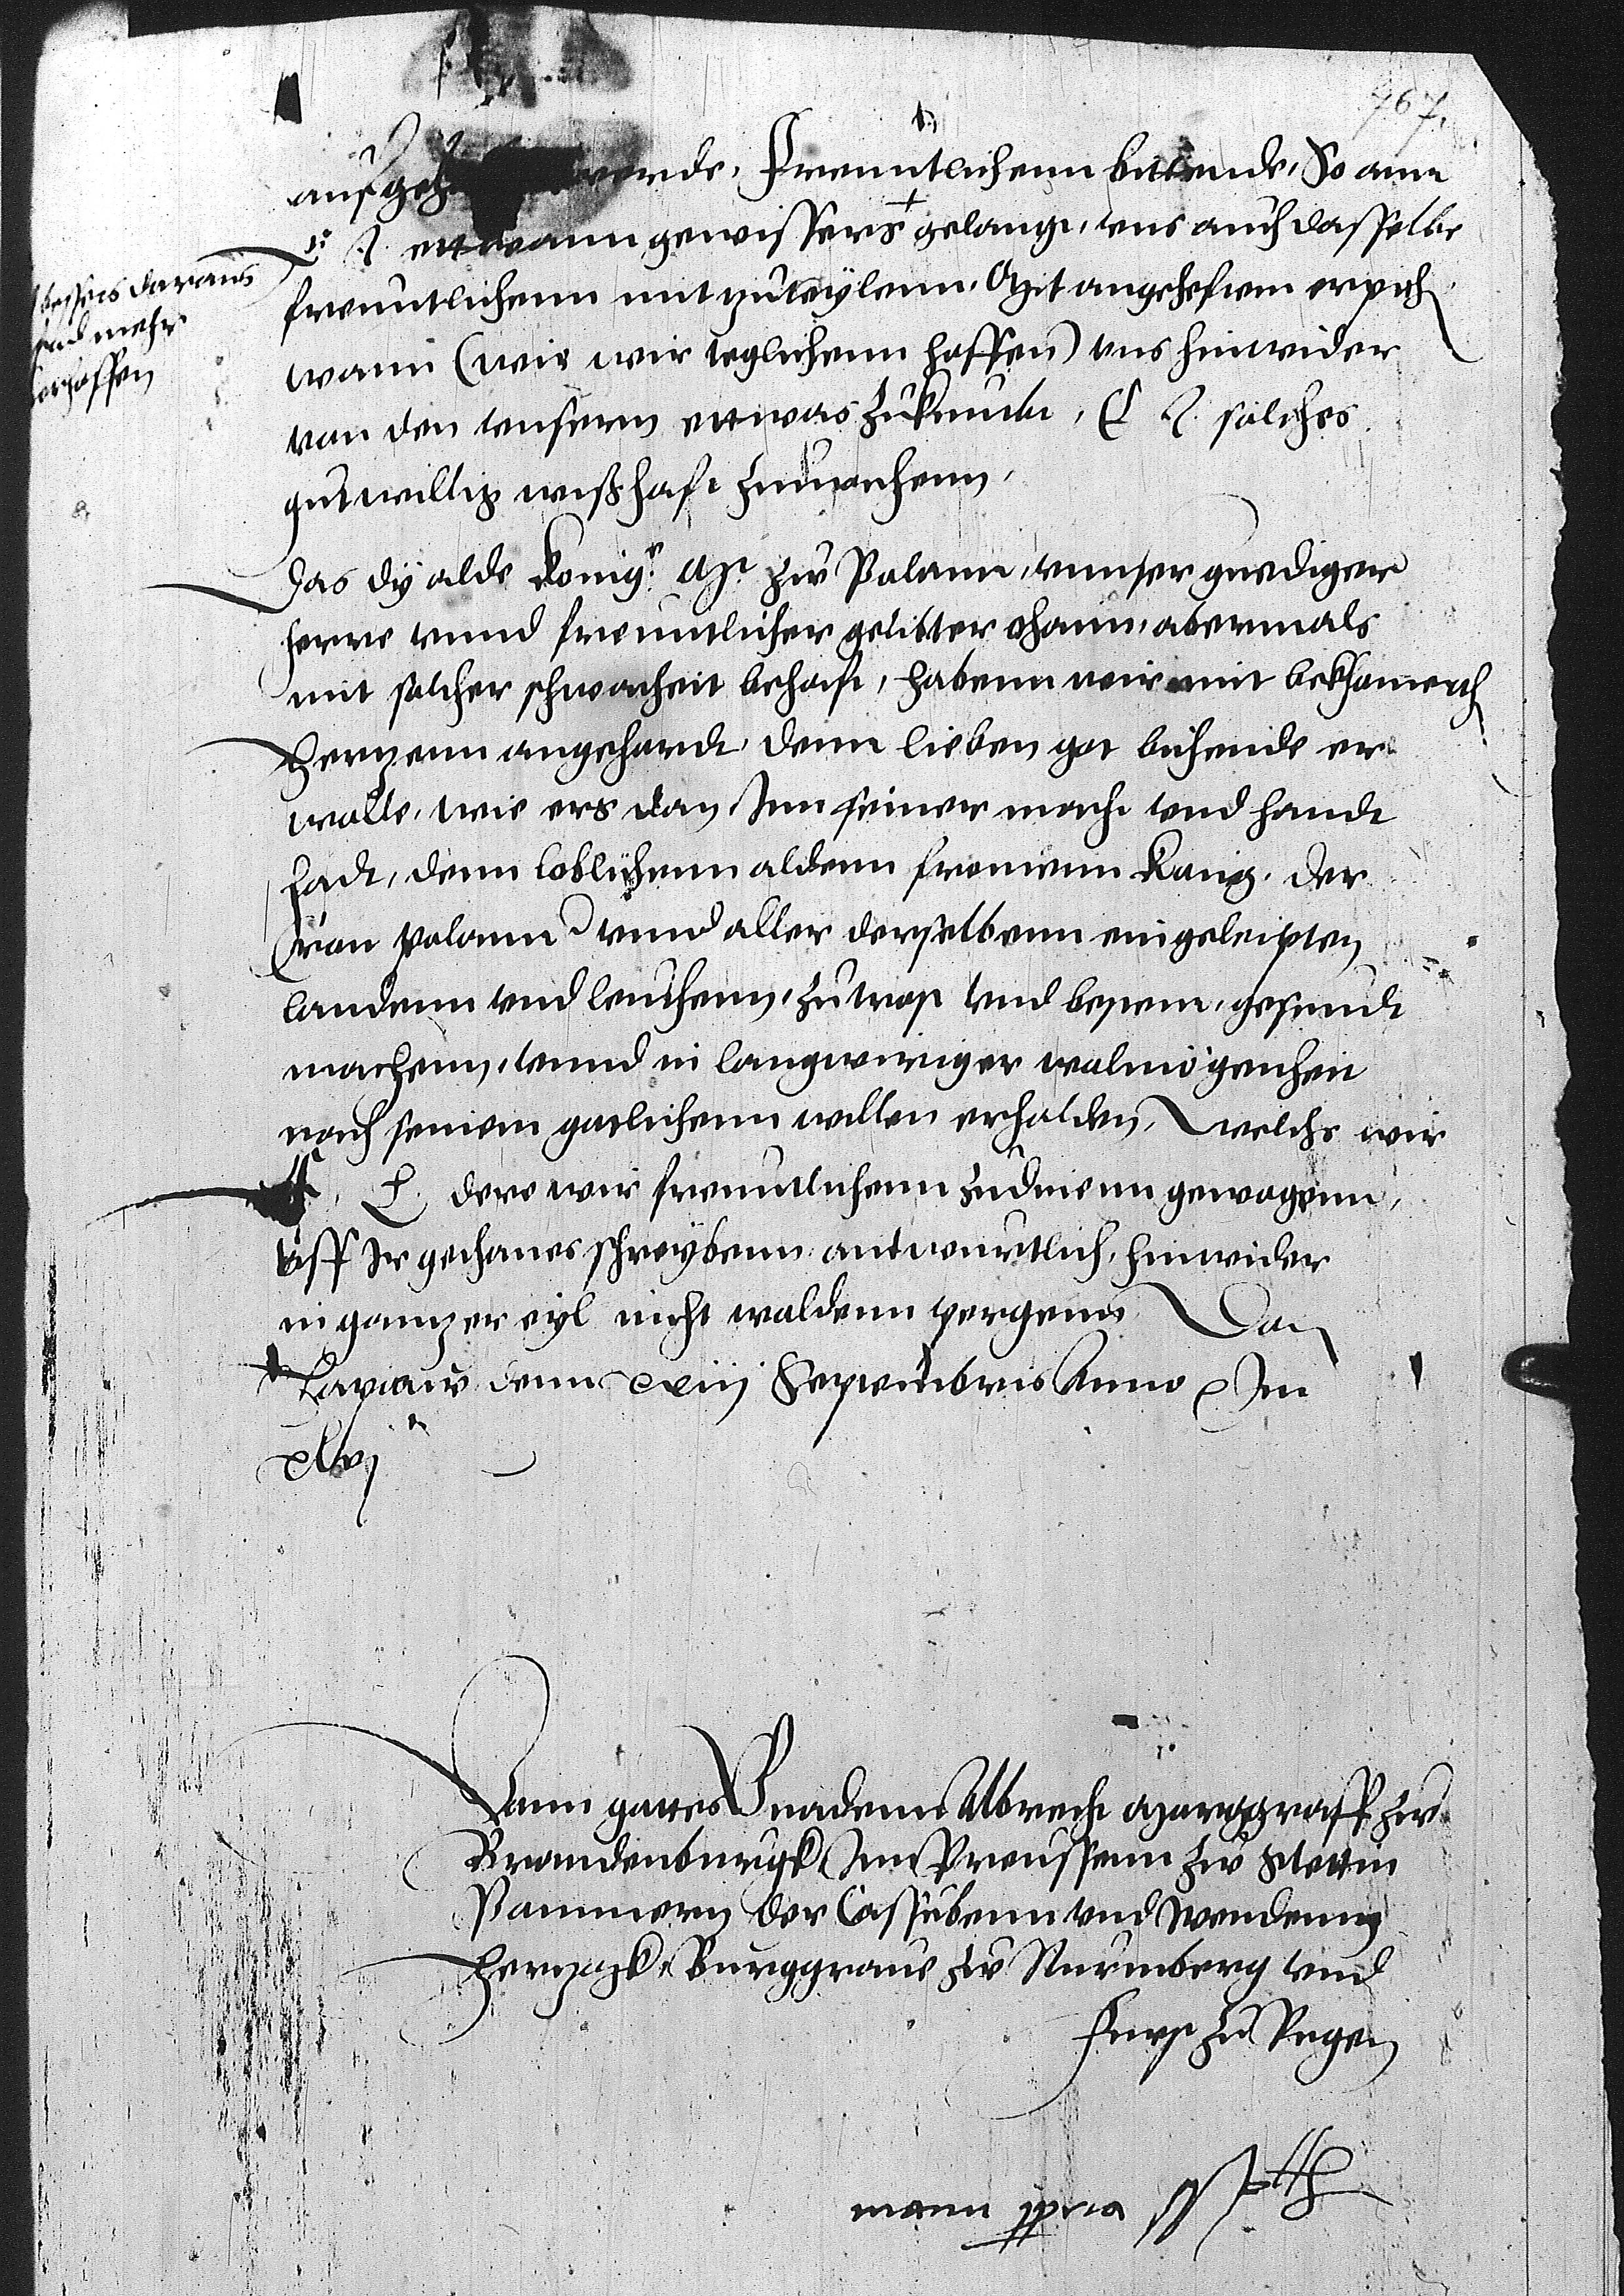 767.
werde, Freuntlichenn bittende, So ann
E. L. ettwann gewissers + gelangt, uns auch dasselbe
freuntlichenn mitzuteylenn, Mit angeheftem erpiet
wann (wie wir teglichenn hoffen) uns hinwider
von den unsern ettwas zukumbt, E L. solches
gutwillig wißhaft zumachenn,
bessers daraus
und mehr
verhoffen
Das dy alde Konigl. Mt. zw Polann, unnser gnediger
herre unnd freuntlicher gelibter ohaim, abermals
mit solcher schwacheit behaft, habenn wir mit bekhomert
Hertzenn angehordt, denn lieben got bittende er
wolle, wie ers dan Inn seiner macht und handt
hadt, denn loblichenn aldenn fromenn Konig, der
Cron Polann unnd aller derselbenn eingeleipten
landenn und leuthenn, zu trost und bestem, gesundt
machenn, unnd in langwiriger wolmögenheit
nach seinem gotlichenn willen erhalden, welchs wir
E. L. dere wir freuntlichenn zudienen gewogenn,
uff Ir gethanes schreybenn antwurtlich, hinwider
in gantzer eyl nicht woldenn pergenn Dat
Tapiaw denn xxiij Septembris Anno Im
xlvj
Vonn gottes Gnadenn Albrecht Marggraff zw
Brandenburgk, Inn Preussenn zw Stettin
Pommern der Cassubenn und Wendenn
Hertzogk, Burggraue zw Nurmberg und
Furst zu Rugen
manu ppria sst